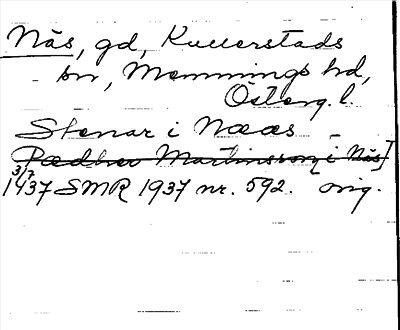 Näs, gd, Kullerstads
sn, Memmings hd,
Österg. l.
Stenar i Næs –
Pædher Martinsson [i Näs]
3/7
1437 SMR 1937 nr. 592. orig.